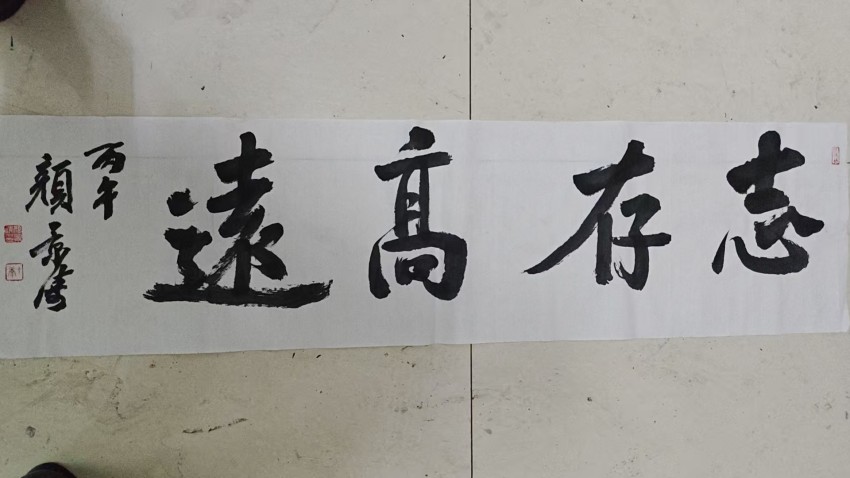 志存高遠
丙午
顏景